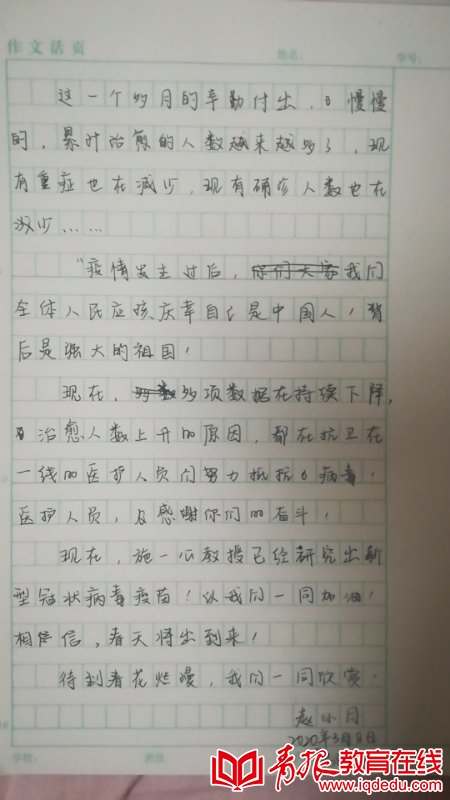 作文活页 姓名: 学号:
这一个多月的辛勤付出,慢慢
的,累计治愈的人数越来越多了,现
有重症也在减少,现有确诊人数也在
减少……
“疫情发生过后,我们
全体人民应该庆幸自己是中国人!背
后是强大的祖国!
现在,多项数据在持续下降,
治愈人数上升的原因,都在抗卫在
一线的医护人员们努力抵抗病毒!
医护人员,感谢你们的奋斗!
现在,施一公教授已经研究出新
型冠状病毒疫苗!让我们一同加油!
相信,春天将出到来!
待到春花烂漫,我们一同欣赏.
赵小月
2020年3月8日
学校: 班级
青报教育在线
www.iqdedu.com